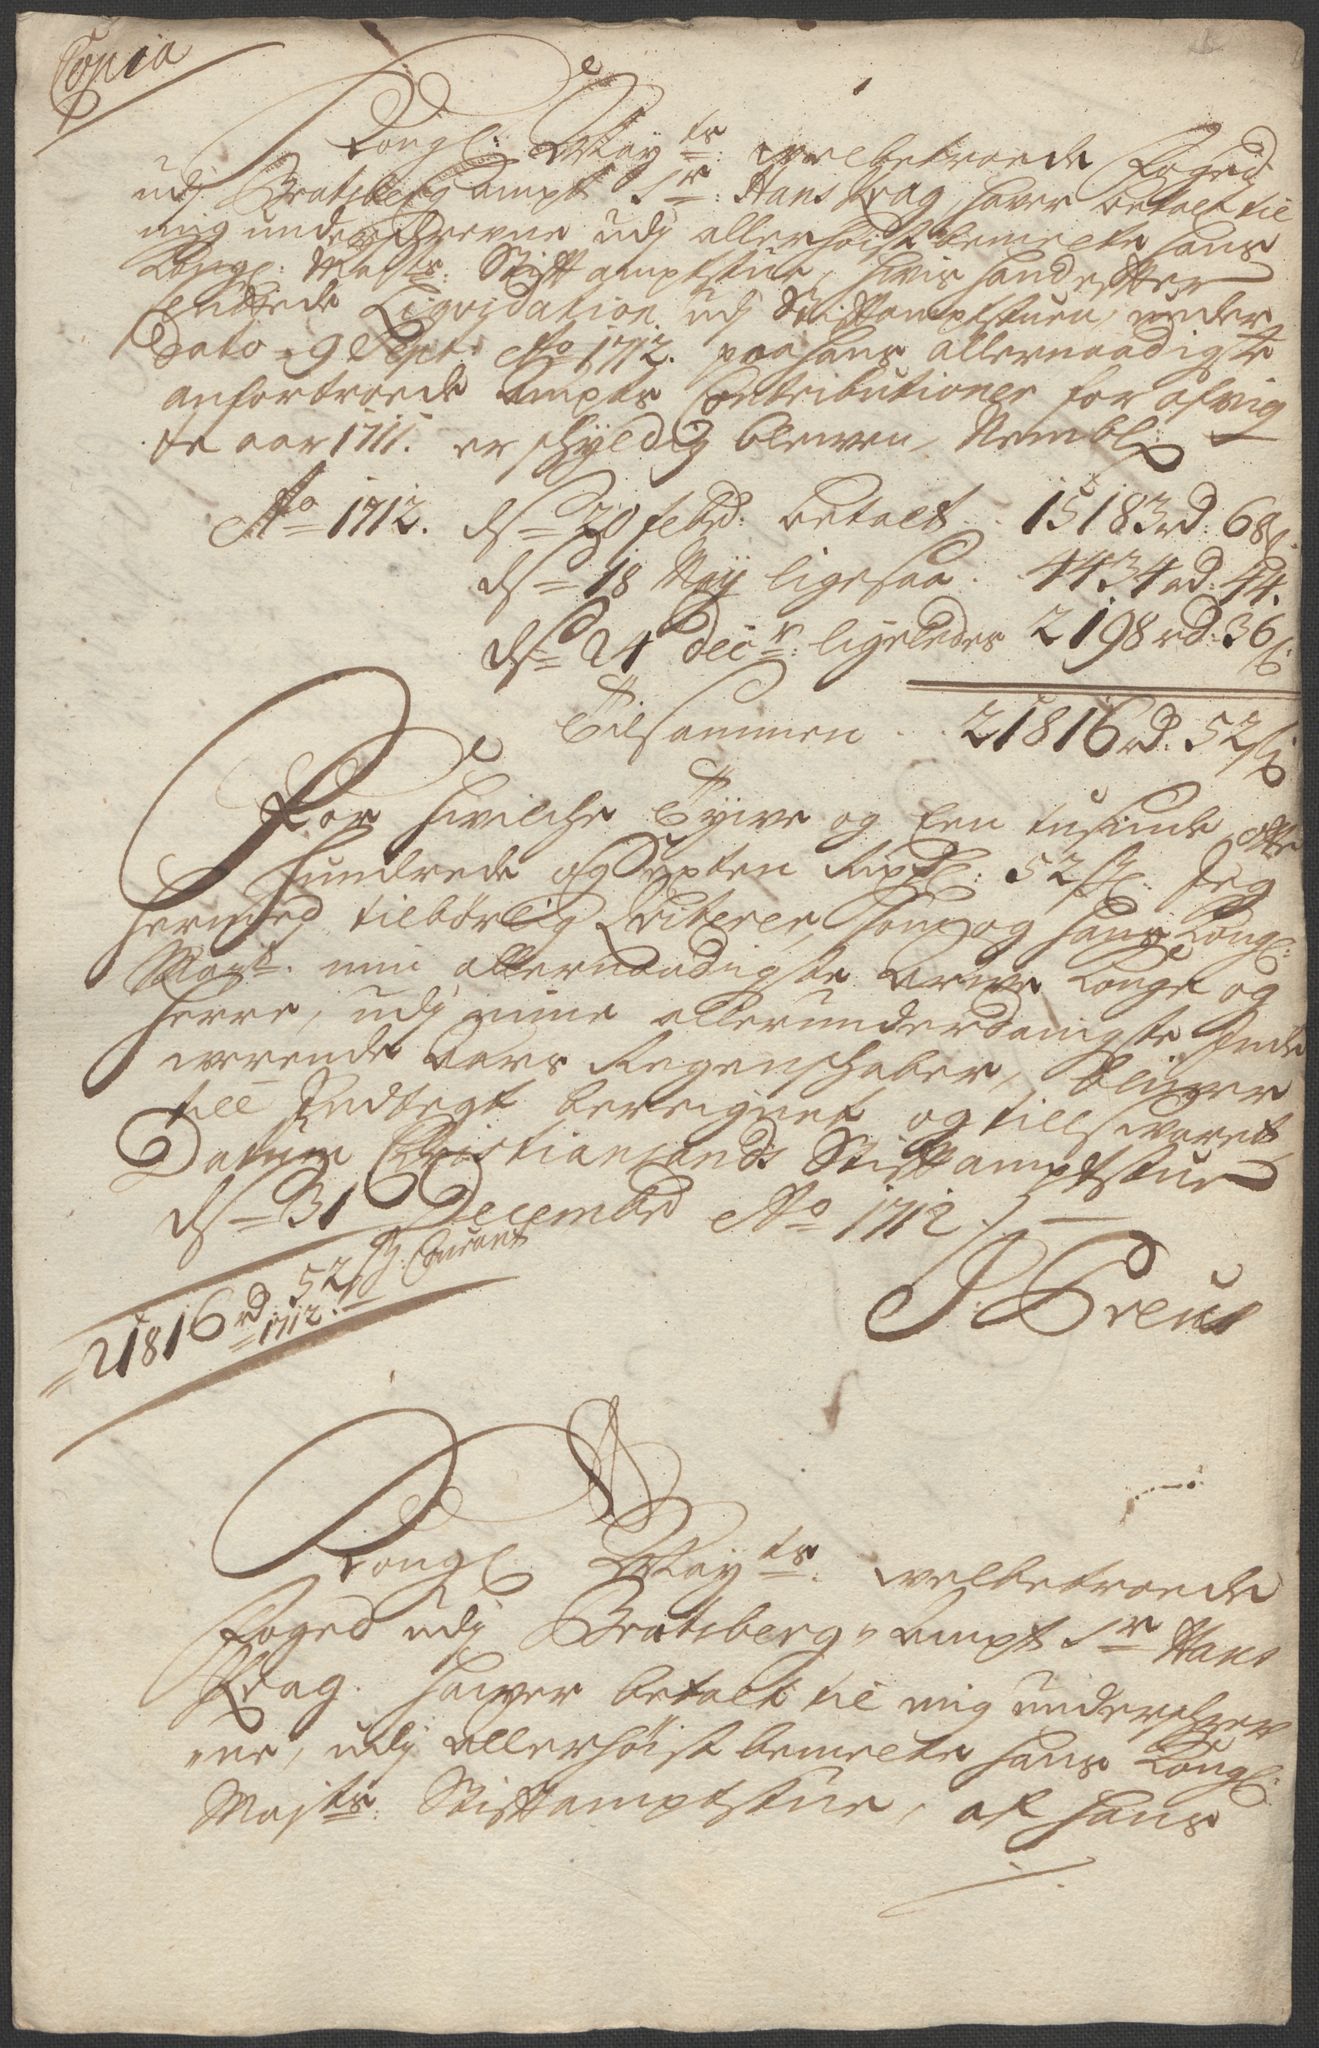 Copia
Kongl: Mayts: welbetroede Foged
udj Bratsberg Ampt Sr: Hans Krag, haver betalt til
mig underschrevne udj allerhöist bemelte Hans
Kongl: Majts: Stiftamptstue, hvis hand efter
Liqvidation udj Stiftamptstuen, under
Dato 9 Sept: Ao 1712. paa hans allernaadigste
anfortroede Ampts Contributioner for afvig
te aar 1711. er schyldig blewen, Nembl:
Ao 1712. ds 20 febr: betalt 15183 rd: 68 s:
ds 18 Maÿ ligesaa 4434 rd: 44.
ds 24 decr: ligeledes 2198 rd: 36 s:
Tilsammen 21816 rd: 52 s:
For hvilche Tÿwe og Een tusinde otte
Hundrede og Sexten Rixdl: 52 s: Jeg
hermed tilbörlig Qviterer, som og hans Kongl:
Mayt: min allernaadigste Arwe Konge og
Herre, udj mine allerunderdanigste Inde
werende Aars Regenschaber, bliver
till Indtegt beregnet og tillswaret,
Datum Christiansands Stiftamptstue
ds 31 Decembr Ao 1712
21816 rd 52 s: Courant
1712.
J: Preus
Kongl: Mayts: welbetroede
Foged udj Bratsberg Ampt Sr Hans
Krag. hawer betalt til mig underschrew
ne, udj allerhöist bemelte hans Kongl:
Majts: Stiftamptstue, af hans